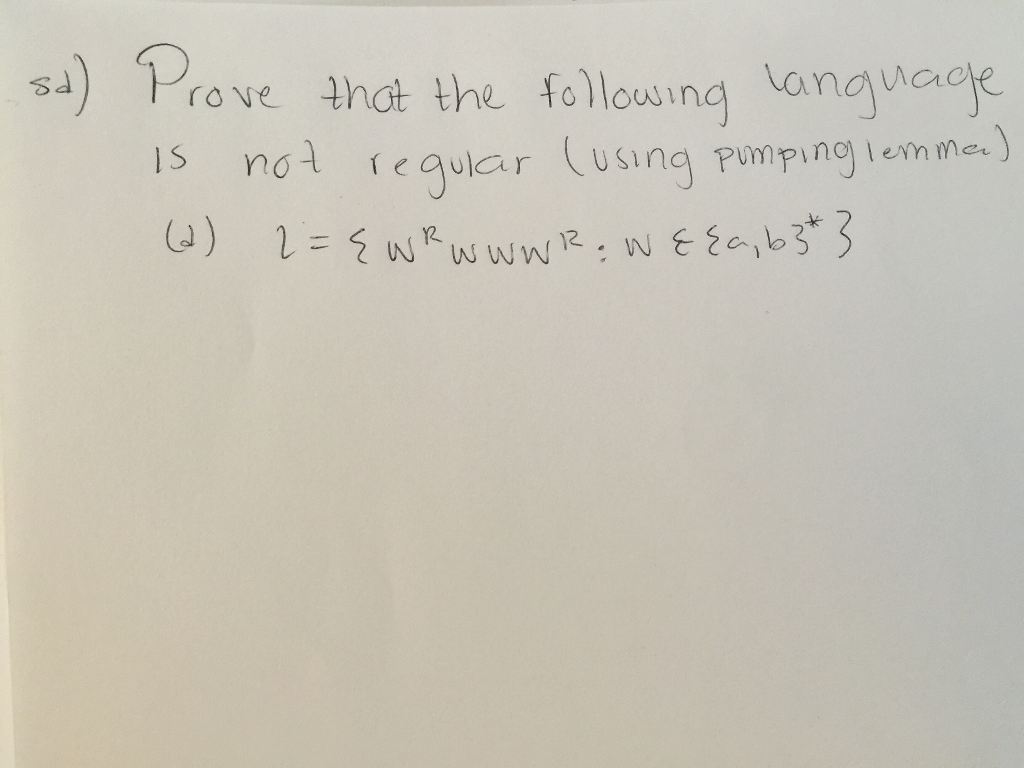 5d) Prove that the following language
is not regular (using pumping lemma)
(d) L = { wᴿwwwᴿ : w ε {a,b}* }